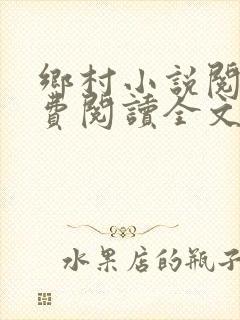 鄉村小說閱
費閱讀全文
水果店的瓶子